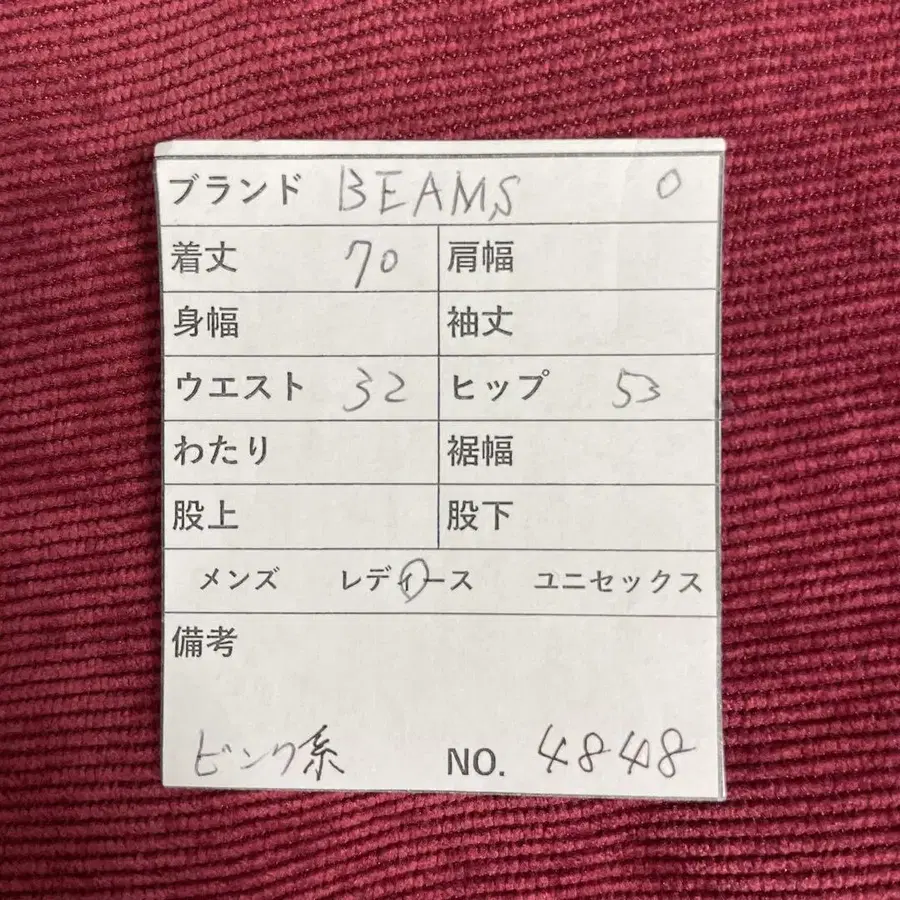 ブランド BEAMS 0
着丈 70 肩幅
身幅 袖丈
ウエスト 32 ヒップ 53
わたり 裾幅
股上 股下
メンズ レディース ユニセックス
備考
ピンク系 NO. 4848